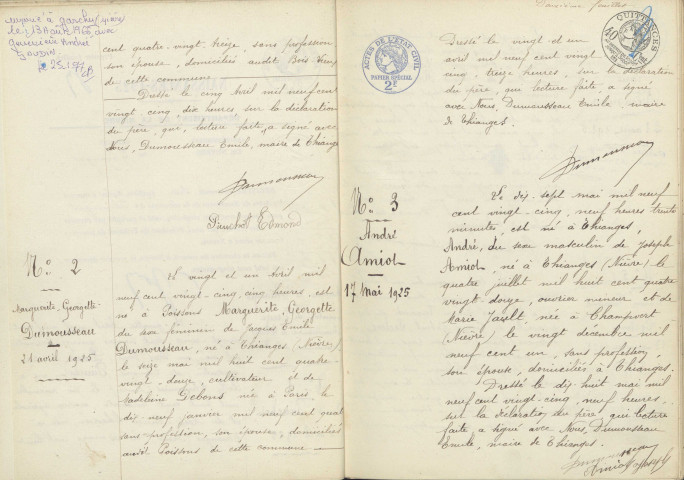 le 13 Août 1966 avec
cent quatre-vingt-treize, sans profession
son épouse, domiciliés audit Bois-
de cette commune.
Dressé le cinq Avril mil neuf cent
vingt-cinq dix heures, sur la déclaration
du père, qui, lecture faite, a signé avec
Nous, Dumousseau Emile, maire de Thianges
Dumousseau
Edmond
N° 2
Marguerite, Georgette
Dumousseau
21 avril 1925
Le vingt et un Avril mil
neuf cent vingt-cinq, cinq heures, est
né à Soissons Marguerite, Georgette
du sexe féminin de Jacques Emile
Dumousseau, né à Thianges (Nièvre)
le seize mai mil huit cent quatre-
vingt-douze, cultivateur et de
Madeleine née à Paris, le
dix-neuf janvier mil neuf cent quat
sans profession, son épouse, domiciliés
audit Soissons de cette commune
Deuxième feuillet
QUITTANCES
ACTES DE L'ETAT CIVIL
PAPIER SPÉCIAL
2F
Dressé le vingt et un
avril mil neuf cent vingt
cinq, treize heures, sur la déclaration
du père, qui lecture faite a signé
avec Nous, Dumousseau Emile, maire
de Thianges.
Dumousseau
N° 3
André
Amiot
17 Mai 1925
Le dix-sept mai mil neuf
cent vingt-cinq, neuf heures trente
minutes, est né à Thianges,
André, du sexe masculin de Joseph
Amiot, né à Thianges (Nièvre) le
quatre juillet mil huit cent quatre
vingt-douze, ouvrier mineur et de
Marie née à Champvert
(Nièvre) le vingt décembre mil
neuf cent un, sans profession,
son épouse, domiciliés à Thianges.
Dressé le dix-huit mai mil
neuf cent vingt-cinq, neuf heures,
sur la déclaration du père, qui lecture
faite, a signé avec Nous, Dumousseau
Emile, maire de Thianges.
Dumousseau
Amiot Joseph